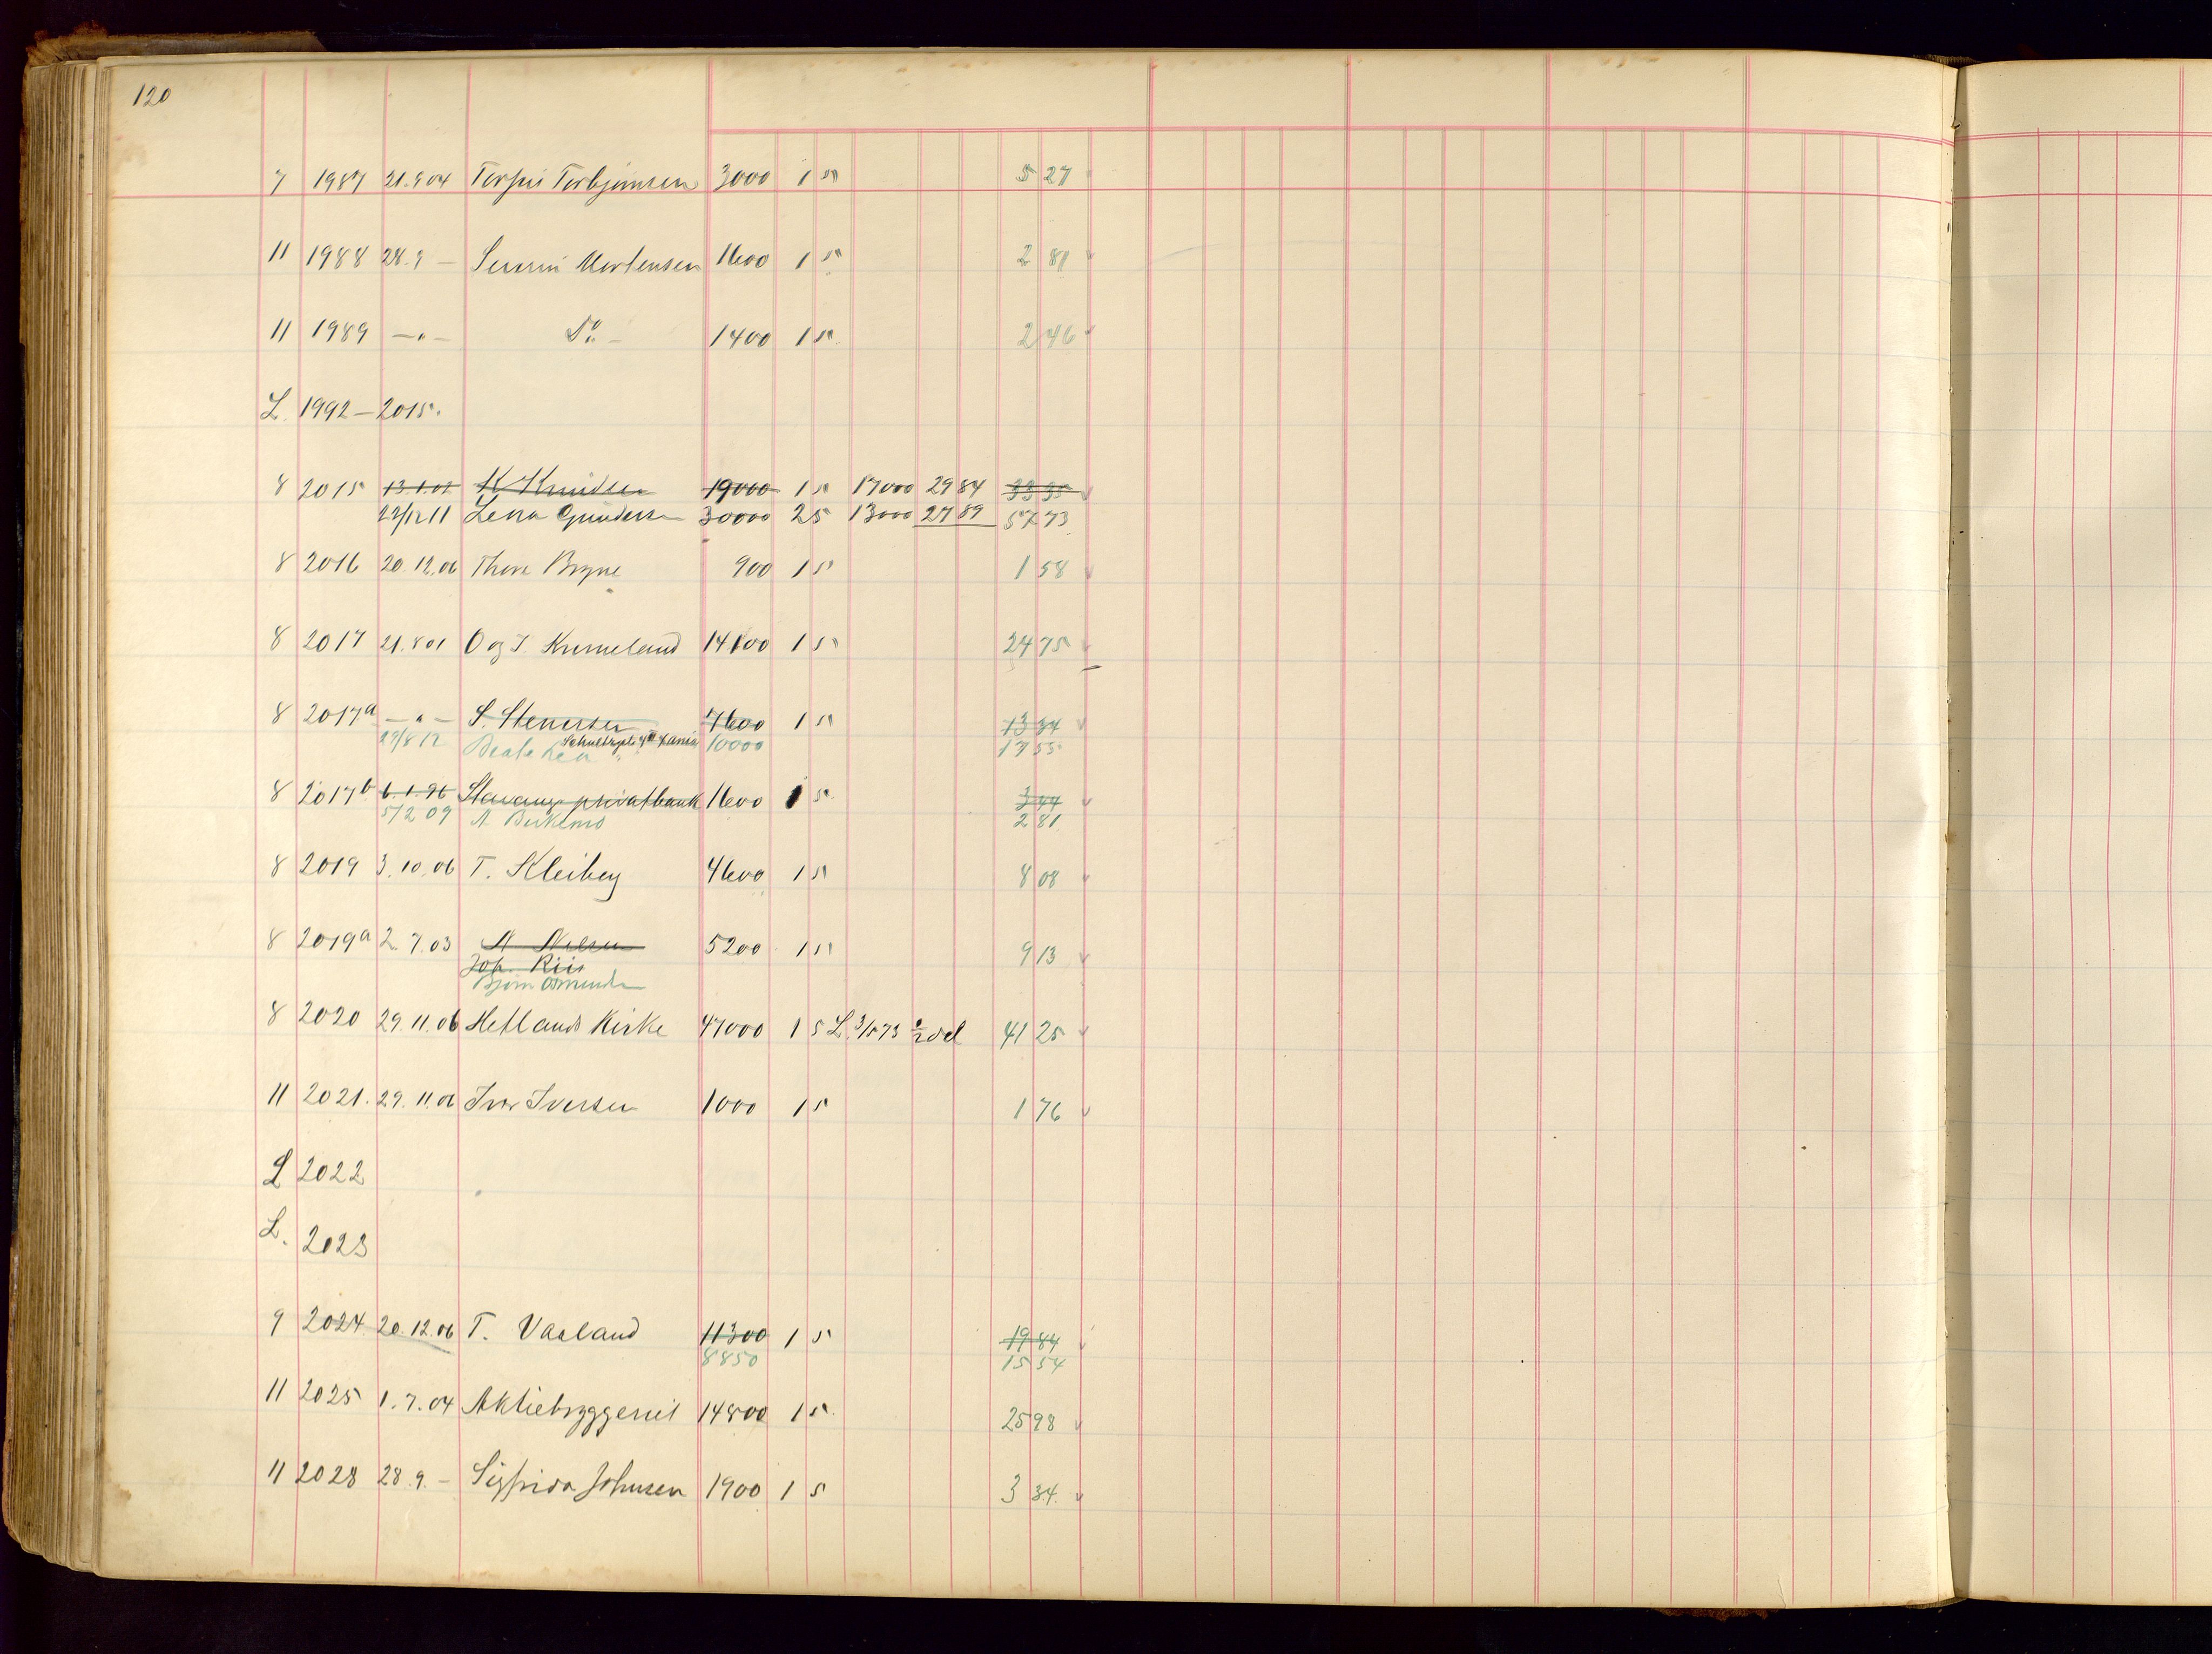 120
7 1987 21.9.04 Torfin Torbjørnsen 3000 1 5 5 27
11 1988 28.9 — Severin Mortensen 1600 1 5 2 81
11 1989 — " — Do — 1400 1 5 2 46
L. 1992 — 2015.
8 2015 13.1.02 K Knudsen 19000 1 5 17000 29 84 33 35
22/12 11 Lena Gundersen 30000 25 13000 27 89 57 73
8 2016 20.12.06 Thore Bryne 900 1 5 1 58
8 2017 21.8.01 O og T. Kverneland 14100 1 5 24 75
8 2017a — " — S. Stenersen 7600 1 5 13 34
29/8 12 Beate Lea 10000 17 55
8 2017b 6.1.96 Stavanger privatbank 1600 1 5 3 44
5/2 09 A. 2 81
8 2019 3.10.06 T. Kleiberg 4600 1 5 8 08
8 2019a 2.7.03 N Nilsen 5200 1 5 9 13
Joh. Riis
Bjørn Osmundsen
8 2020 29.11.06 Hetlands Kirke 47000 1 5 L. 3/1573 1/2 del 41 25
11 2021. 29.11.06 Ivar Iversen 1000 1 5 1 76
L 2022
L. 2023
9 2024 20.12.06 T. Vaaland 11300 1 5 19 84
8850 15 54
11 2025 1.7.04 Aktiebryggeriet 14800 1 5 25 98
11 2028 28.9. — Sigfrida Johnsen 1900 1 5 3 34